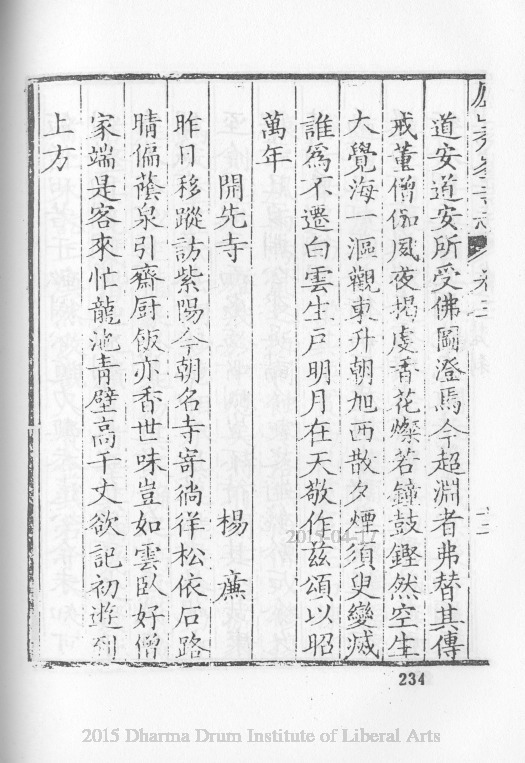 道安道安所受佛圖澄焉今超淵者弗替其傳
戒董僧伽夙夜揭虔香花燦若鐘鼓鏗然空生
大覺海一漚觀東升朝旭西散夕煙須臾變滅
誰爲不遷白雲生戶明月在天敬作茲頌以昭
萬年
開先寺 楊廉
昨日移蹤訪紫陽今朝名寺寄徜徉松依石路
晴偏蔭泉引齋厨飯亦香世味豈如雲臥好僧
家端是客來忙龍池青壁高千丈欲記初遊到
上方
234
2015-04-17
2015 Dharma Drum Institute of Liberal Arts